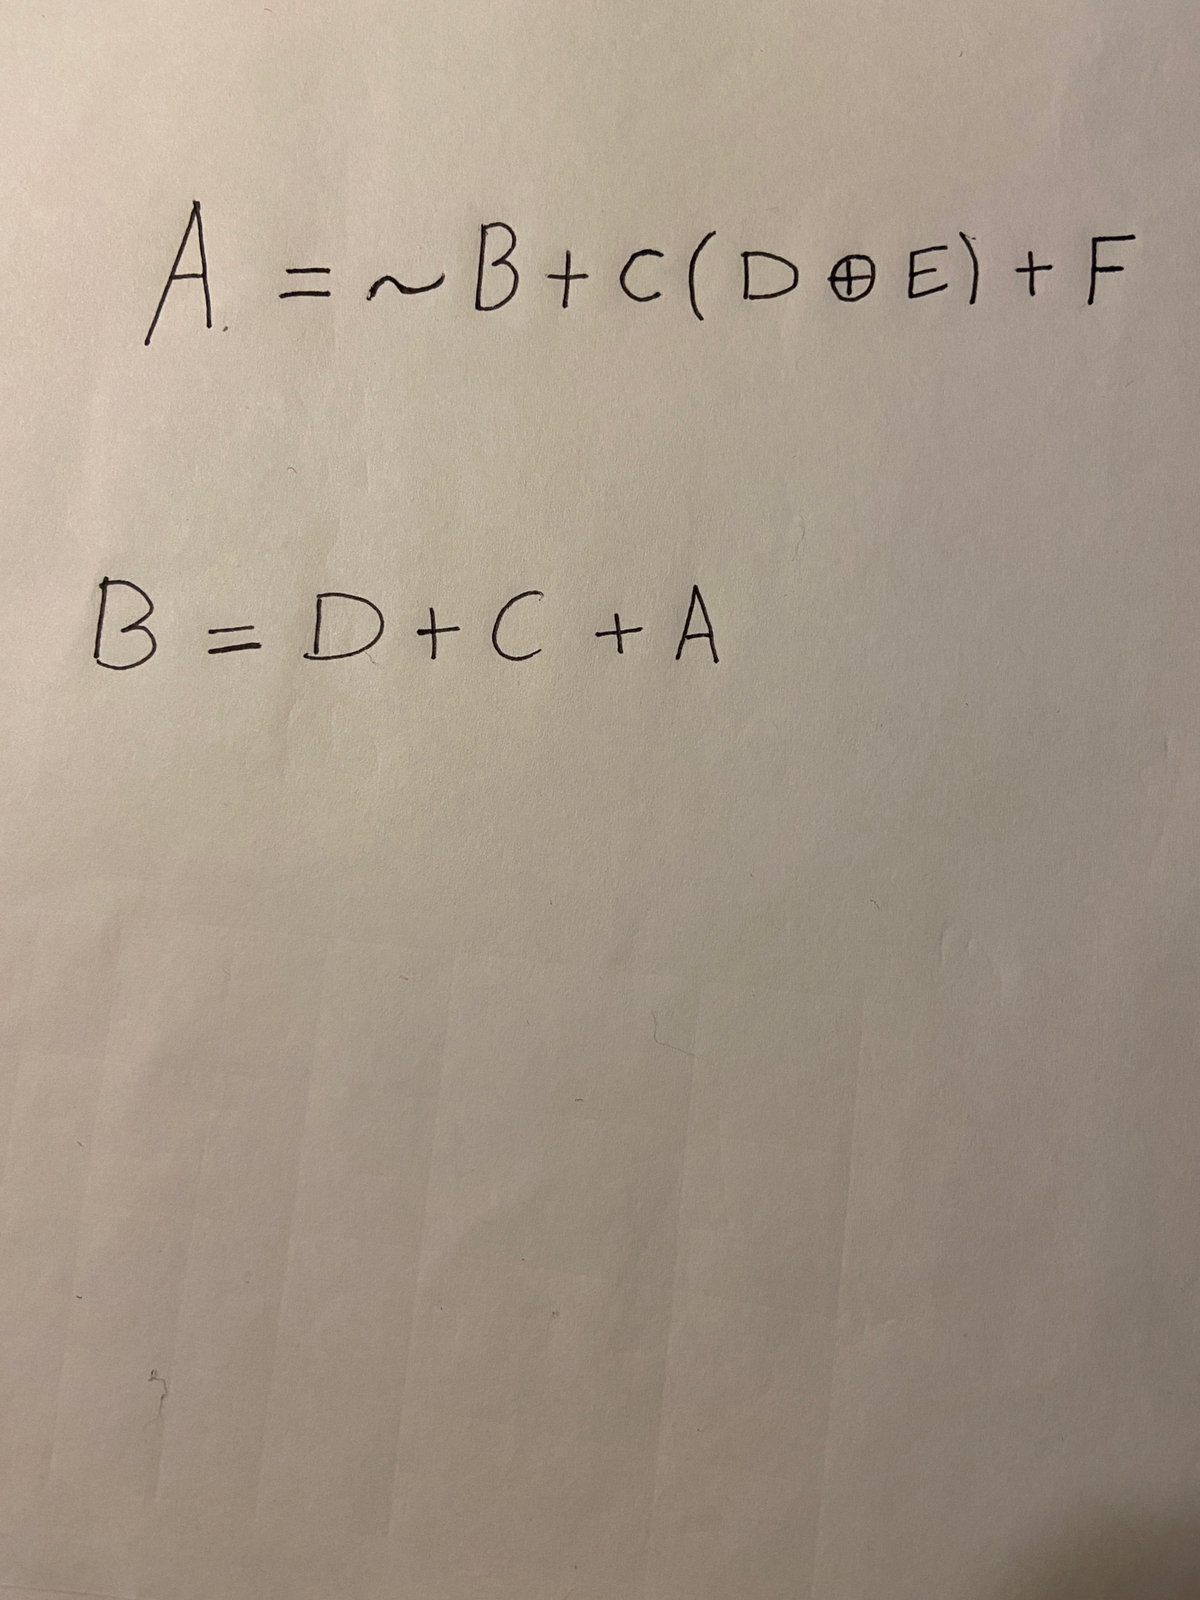 A = ~ B + C ( D ⊕ E ) + F
B = D + C + A